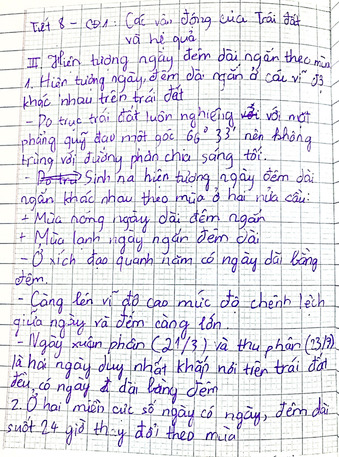 Tiết 8 - CĐ1: Các vận động của Trái đất
và hệ quả
III. Hiện tượng ngày đêm dài ngắn theo mùa
1. Hiện tượng ngày, đêm dài ngắn ở các vĩ độ
khác nhau trên trái đất
- Do trục trái đất luôn nghiêng với với một
phẳng quỹ đạo một góc 66° 33' nên không
trùng với đường phân chia sáng tối.
- Do trụ Sinh ra hiện tượng ngày đêm dài
ngắn khác nhau theo mùa ở hai nửa cầu:
+ Mùa nóng ngày dài đêm ngắn
+ Mùa lạnh ngày ngắn đêm dài
- Ở xích đạo quanh năm có ngày dài bằng
đêm.
- Càng lên vĩ độ cao mức độ chênh lệch
giữa ngày và đêm càng lớn.
- Ngày xuân phân (21/3) và thu phân (23/9)
là hai ngày duy nhất khắp nơi trên trái đất
đều có ngày dài bằng đêm
2. Ở hai miền cực số ngày có ngày, đêm dài
suốt 24 giờ thay đổi theo mùa